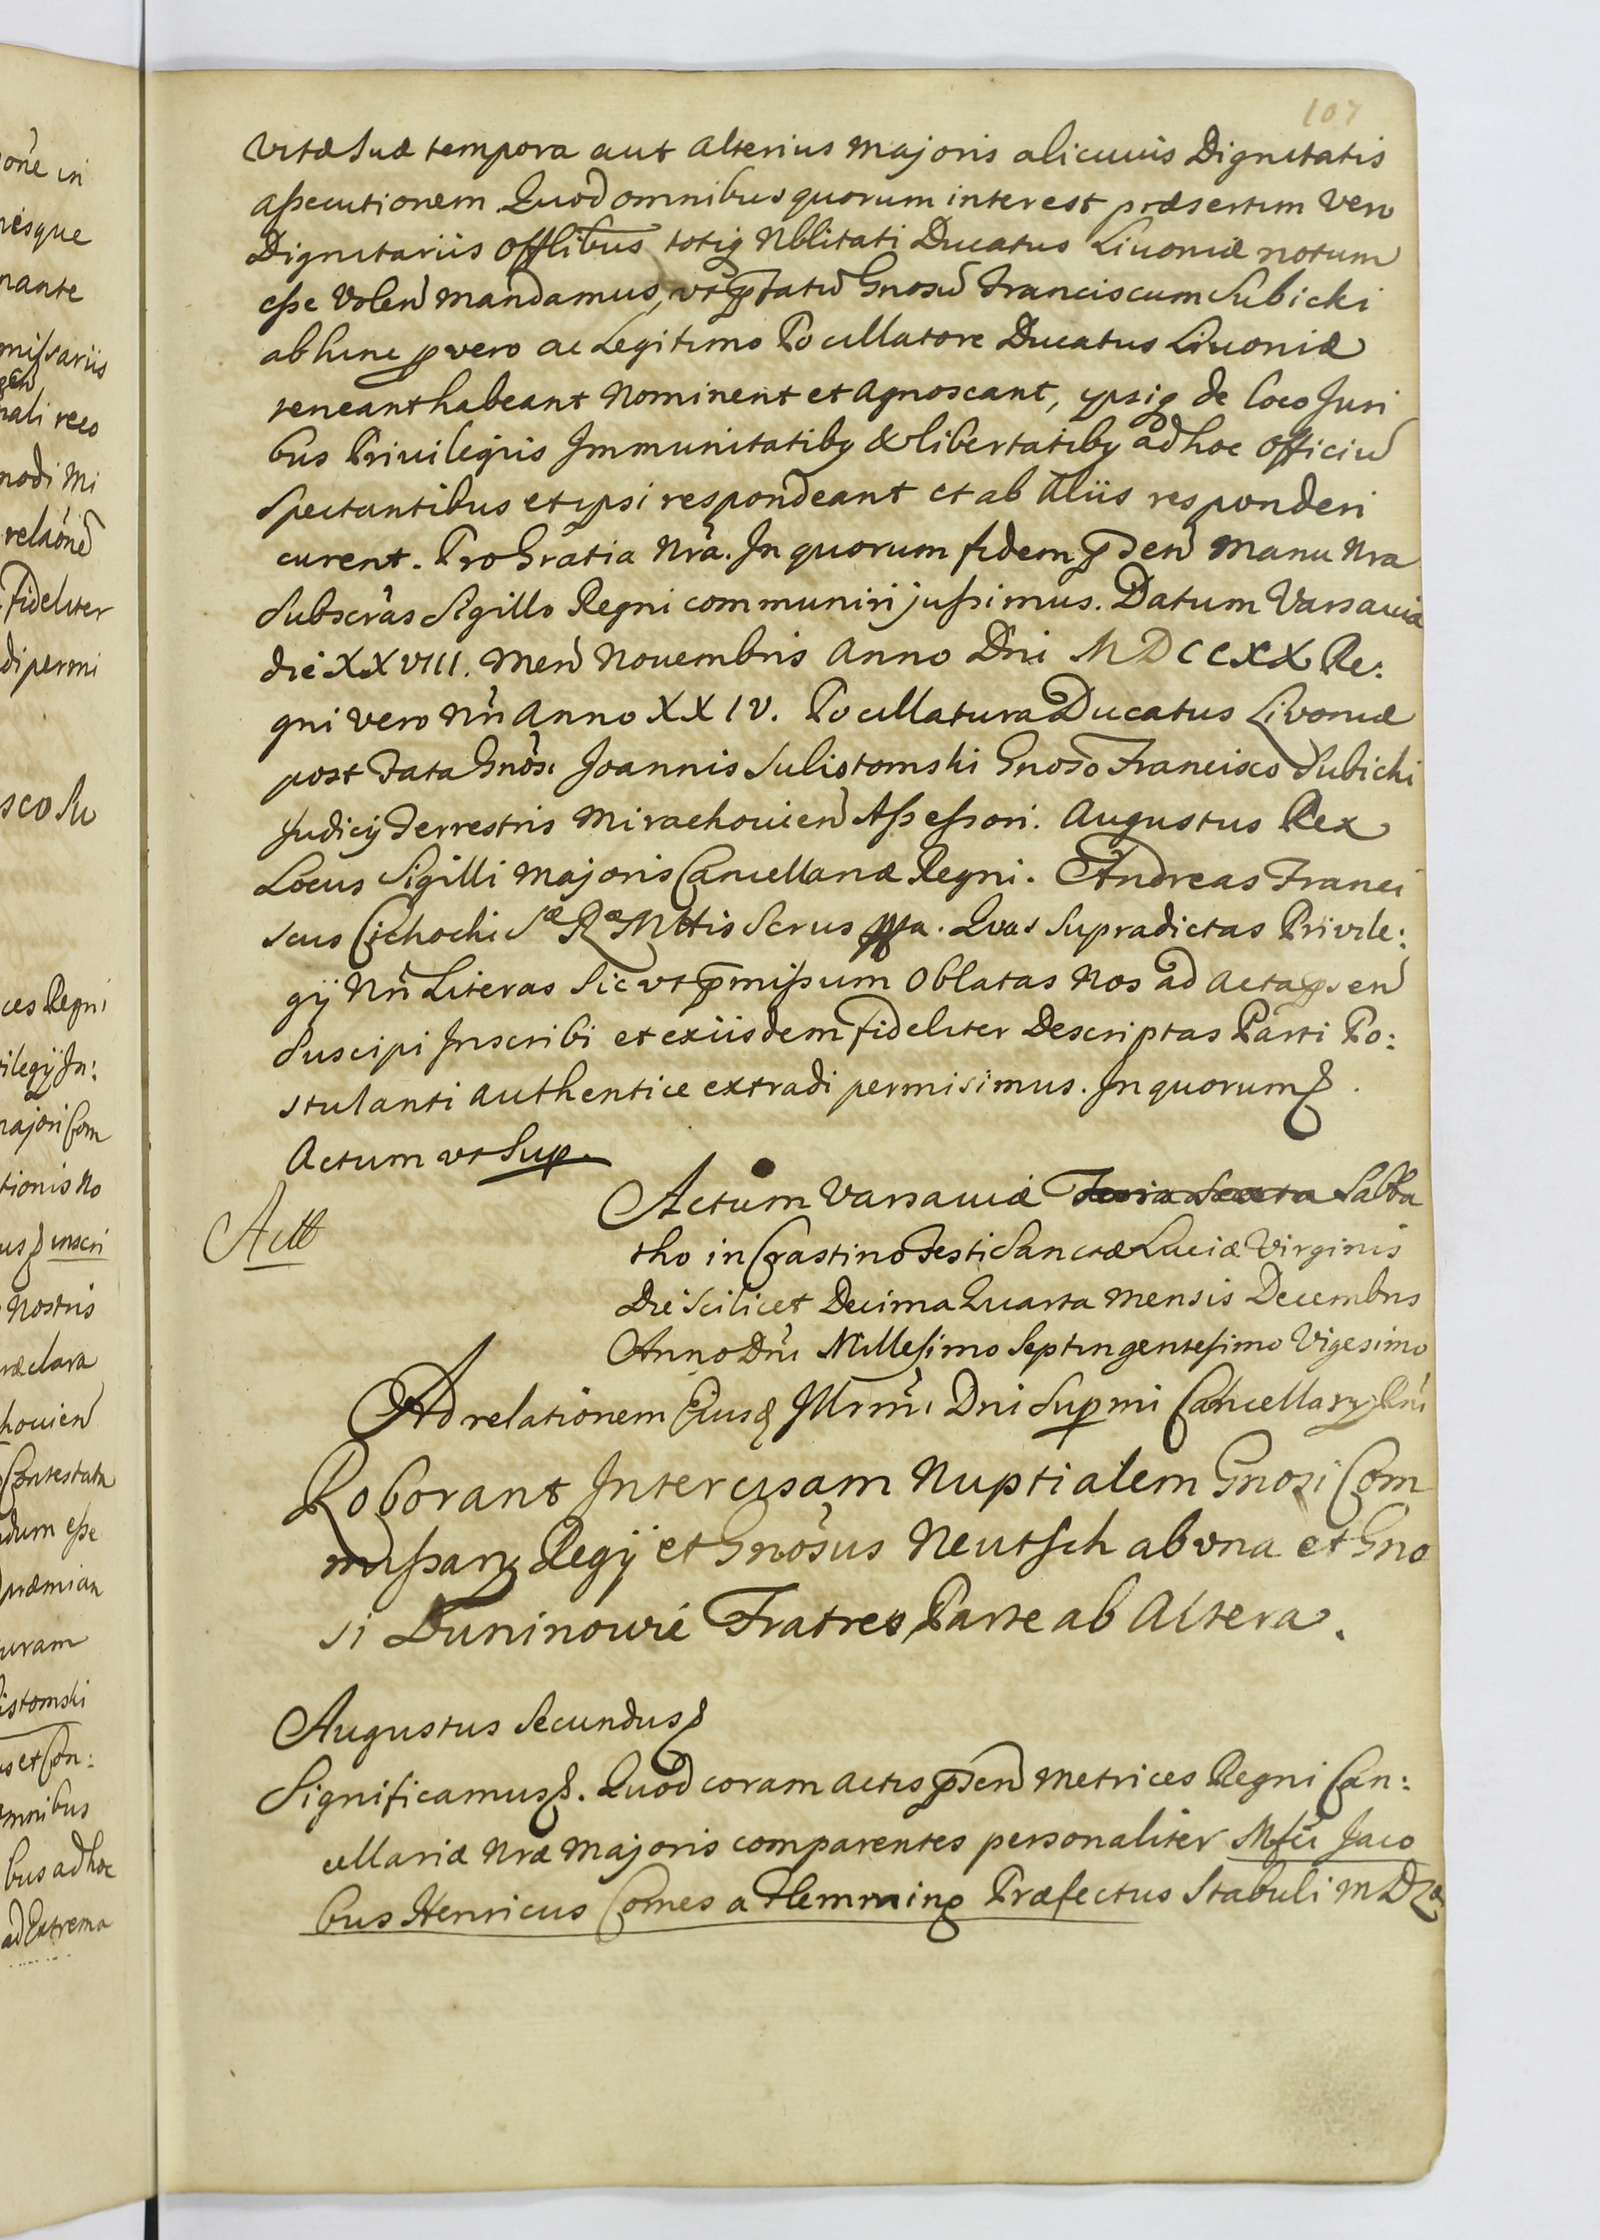 107
vitæ suæ tempora aut alterius majoris alicuius Dignitatis
assecutionem. Quod omnibus quorum interest præsertim vero
Dignitariis Offlibus totiq Nblitati Ducatus Livoniæ notum
esse Volen mandamus, vt pfatu Gnosu Franciscum Subicki
ab hinc p vero ac Legitimo Pocillatore Ducatus Livoniæ
teneant habeant Nominent et agnoscant, ipsiq de loco Juri
bus Privilegiis Immunitatibq & libertatibq ad hoc officiu
Spectantibus et ipsi respondeant et ab Aliis responderi
curent. Pro Gratia Nra. In quorum fidem psen Manu Nra
Subscras Sigillo Regni communiri jussimus. Datum Varsaviæ
die XXVIII. Men Novembris Anno Dni MDCCXX Re:
gni vero Nri Anno XXIV. Pocillatura Ducatus Livoniæ
post fata Gnosi Joannis Sulistomski Gnoso Francisco Subicki
Judicij Terrestris Mirachovien Assessori. Augustus Rex
Locus Sigilli Majoris Cancellariæ Regni. Andreas Franci
scus Cichocki Sæ Ræ Mttis Scrus mpa. Quas supradictas Privile:
gij Nri Literas sic vt pmissum Oblatas Nos ad Acta psen
Suscipi Inscribi et exiisdem fideliter Descriptas Parti Po:
stulanti authentice extradi permisimus. In quorum &
Actum vt Sup.
Actum Varsaviæ Feria Sexta Sabba
Actt
tho in Crastino Festi Sanctæ Luciæ Virginis
Die Scilicet Decima Quarta Mensis Decembris
Anno Dni Millesimo Septingentesimo Vigesimo
Ad relationem Eiusd Illrmi Dni Supmi Cancellarij Rni
Roborant Intercisam Nuptialem Gnosi Com
missarij Regij et Gnosus Neutsch ab vna et Gno
si Duninowie Fratres Parte ab Altera.
Augustus Secundus &
Significamus &. Quod coram actis psen Metrices Regni Can:
cellariæ Nræ Majoris comparentes personaliter Mfci Jaco
bus Henricus Comes a Flemming Præfectus Stabuli M D L